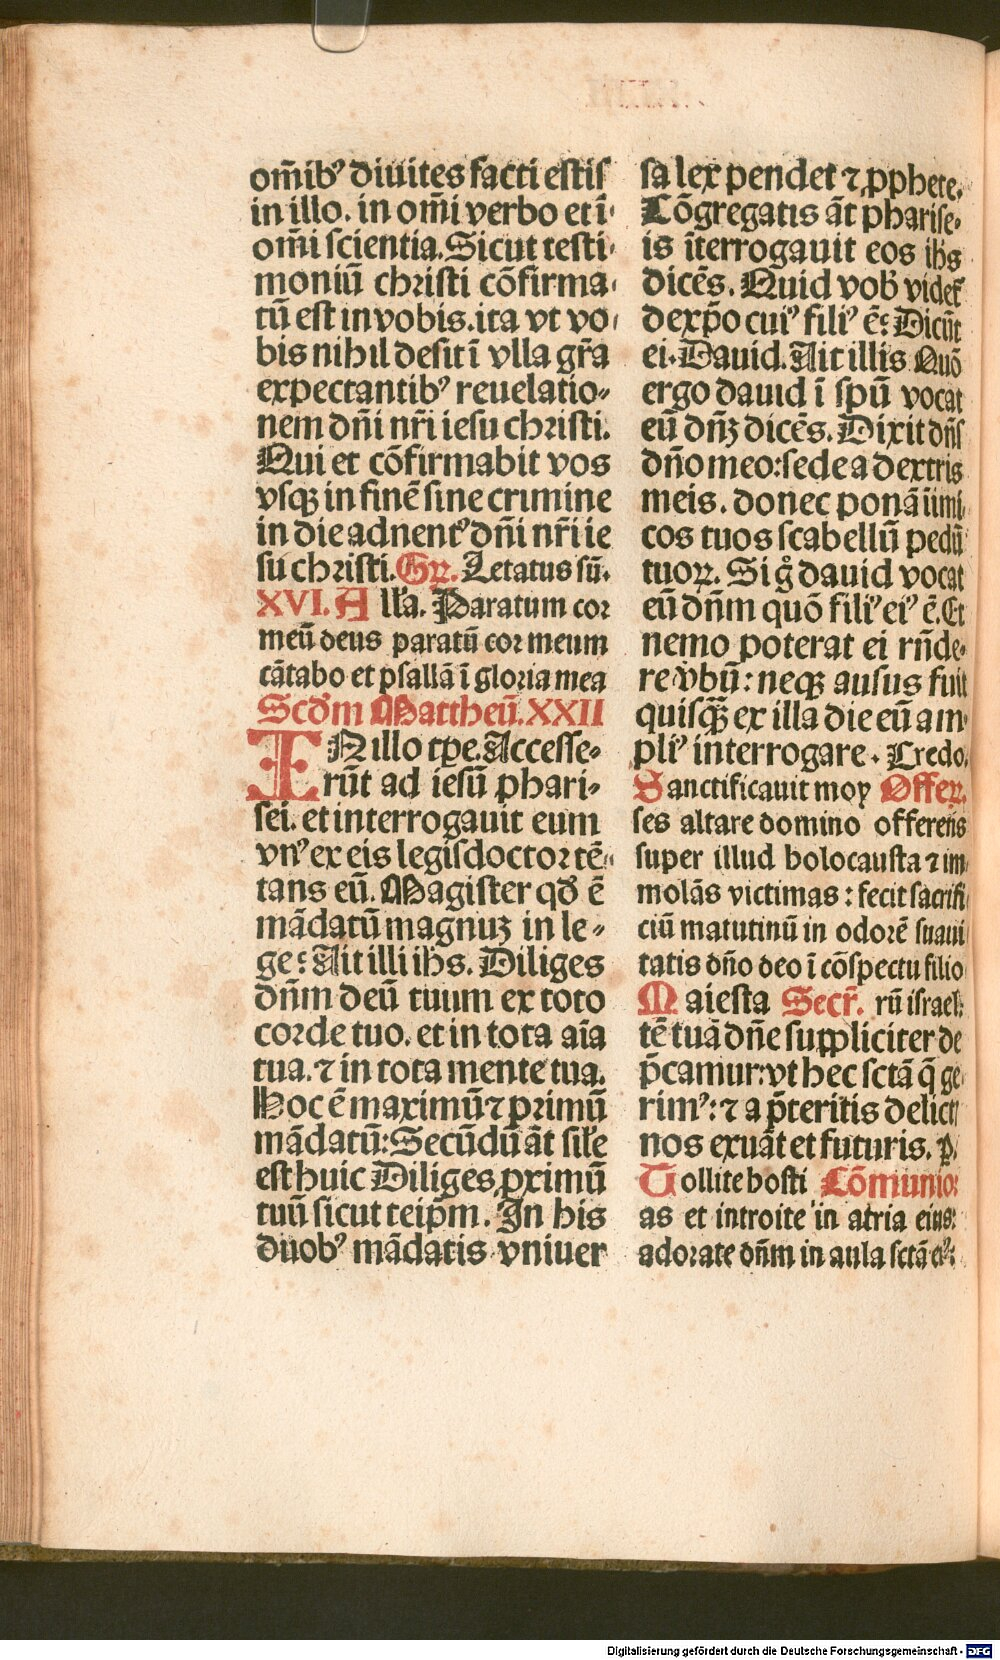 om̄ibꝰ diuites facti estis
in illo. in om̄i verbo et ī
om̄i scientia. Sicut testi-
moniū christi cōfirma-
tū est in vobis. ita vt vo-
bis nihil desit ī vlla gr̄a
expectantibꝰ reuelatio-
nem dn̄i nr̄i iesu christi.
Qui et cōfirmabit vos
vsqꝫ in finē sine crimine
in die aduentꝰ dn̄i nr̄i ie
su christi. Gꝝ. Letatus sū.
XVI. Alla. Paratum cor
meū deus paratū cor meum
cātabo et psallā ī gloria mea
Scd̄m Mattheū. XXII
IN illo tꝑe. Accesse-
rūt ad iesū phari-
sei. et interrogauit eum
vnꝰ ex eis legisdoctor tē-
tans eū. Magister qd̄ ē
mādatū magnuꝫ in le-
ge: Ait illi ih̄s. Diliges
dn̄m deū tuum ex toto
corde tuo. et in tota aīa
tua. ⁊ in tota mente tua.
Hoc ē maximū ⁊ primū
mādatū: Secūdū āt sil̄e
est huic Diliges ꝓximū
tuū sicut teip̄m. In his
duobꝰ mādatis vniuer
sa lex pendet ⁊ ꝓphete.
Cōgregatis āt pharise-
is īterrogauit eos ih̄s
dicēs. Quid vob̄ videt̄
de xp̄o cuiꝰ filiꝰ ē: Dicūt
ei. Dauid. Ait illis Quō
ergo dauid ī spū vocat
eū dn̄ꝫ dicēs. Dixit dn̄s
dn̄o meo: sede a dextris
meis. donec ponā īimi-
cos tuos scabellū pedū
tuoꝝ. Si g̊ dauid vocat
eū dn̄m quō filiꝰ eiꝰ ē. Et
nemo poterat ei rn̄de-
re v̄bū: neqꝫ ausus fuit
quisqꝫ̄ ex illa die eū am-
pliꝰ interrogare. Credo.
Sanctificauit moy Offeꝝ.
ses altare domino offerens
super illud holocausta ⁊ im-
molās victimas: fecit sacrifi
ciū matutinū in odorē suaui
tatis dn̄o deo ī cōspectu filio
Maiesta Secr̄. rū israel.
tē tuā dn̄e suppliciter de
p̄camur: vt hec sctā q̄ ge
rimꝰ: ⁊ a p̄teritis delict
nos exuāt et futuris. ꝑ.
Tollite hosti Cōmunio:
as et introite in atria eius:
adorate dn̄m in aula sctā eiꝰ:
Digitalisierung gefördert durch die Deutsche Forschungsgemeinschaft - DFG